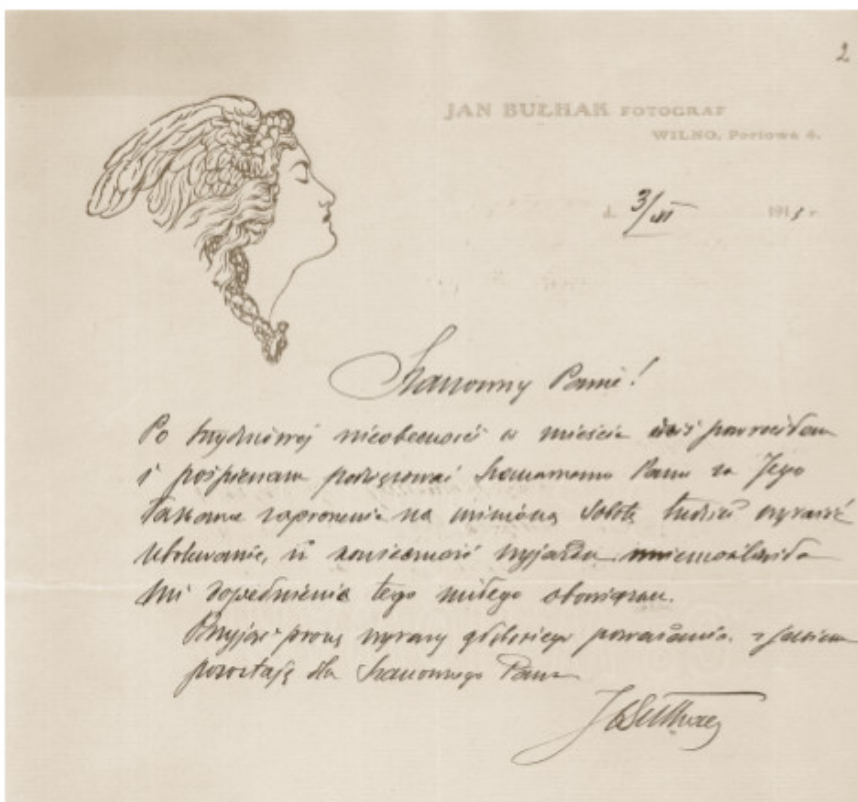 2
JAN BUŁHAK FOTOGRAF
WILNO, Portowa 4.
d. 3/XI 1911 r.
Szanowny Panie!
Po trzydniowej nieobecności w mieście dziś powróciłem
i pośpieszam podziękować Szanownemu Panu za Jego
łaskawe zaproszenie na minioną Sobotę tudzież wyrazić
ubolewanie, iż konieczność wyjazdu uniemożliwiła
mi spełnienie tego miłego obowiązku.
Przyjąć proszę wyrazy głębokiego poważania z jakiem
pozostaję dla Szanownego Pana
JBułhak